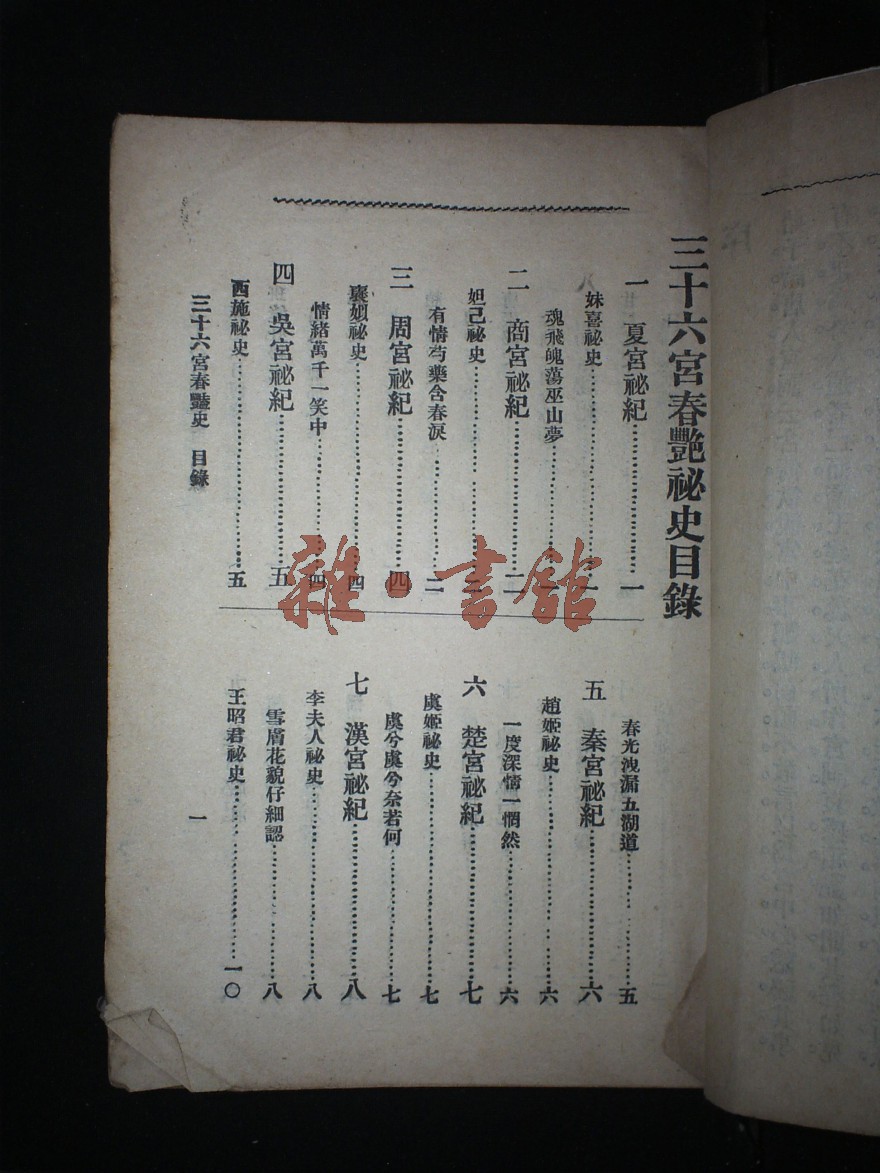 三十六宮春艷祕史目錄
一 夏宮祕紀…………一
妹喜祕史…………一
魂飛魄蕩巫山夢…………
二 商宮祕紀…………二
妲己祕史…………二
有情芍藥含春淚…………二
三 周宮祕紀…………四
襃姒祕史…………四
情緒萬千一笑中…………四
四 吳宮祕紀…………五
西施祕史…………五
春光洩漏五湖道…………五
五 秦宮祕紀…………六
趙姬祕史…………六
一度深情一惘然…………六
六 楚宮祕紀…………七
虞姬祕史…………七
虞兮虞兮奈若何…………七
七 漢宮祕紀…………八
李夫人祕史…………八
雪膚花貌仔細認…………八
王昭君祕史…………一〇
三十六宮春豔史 目錄
一
雜·書館